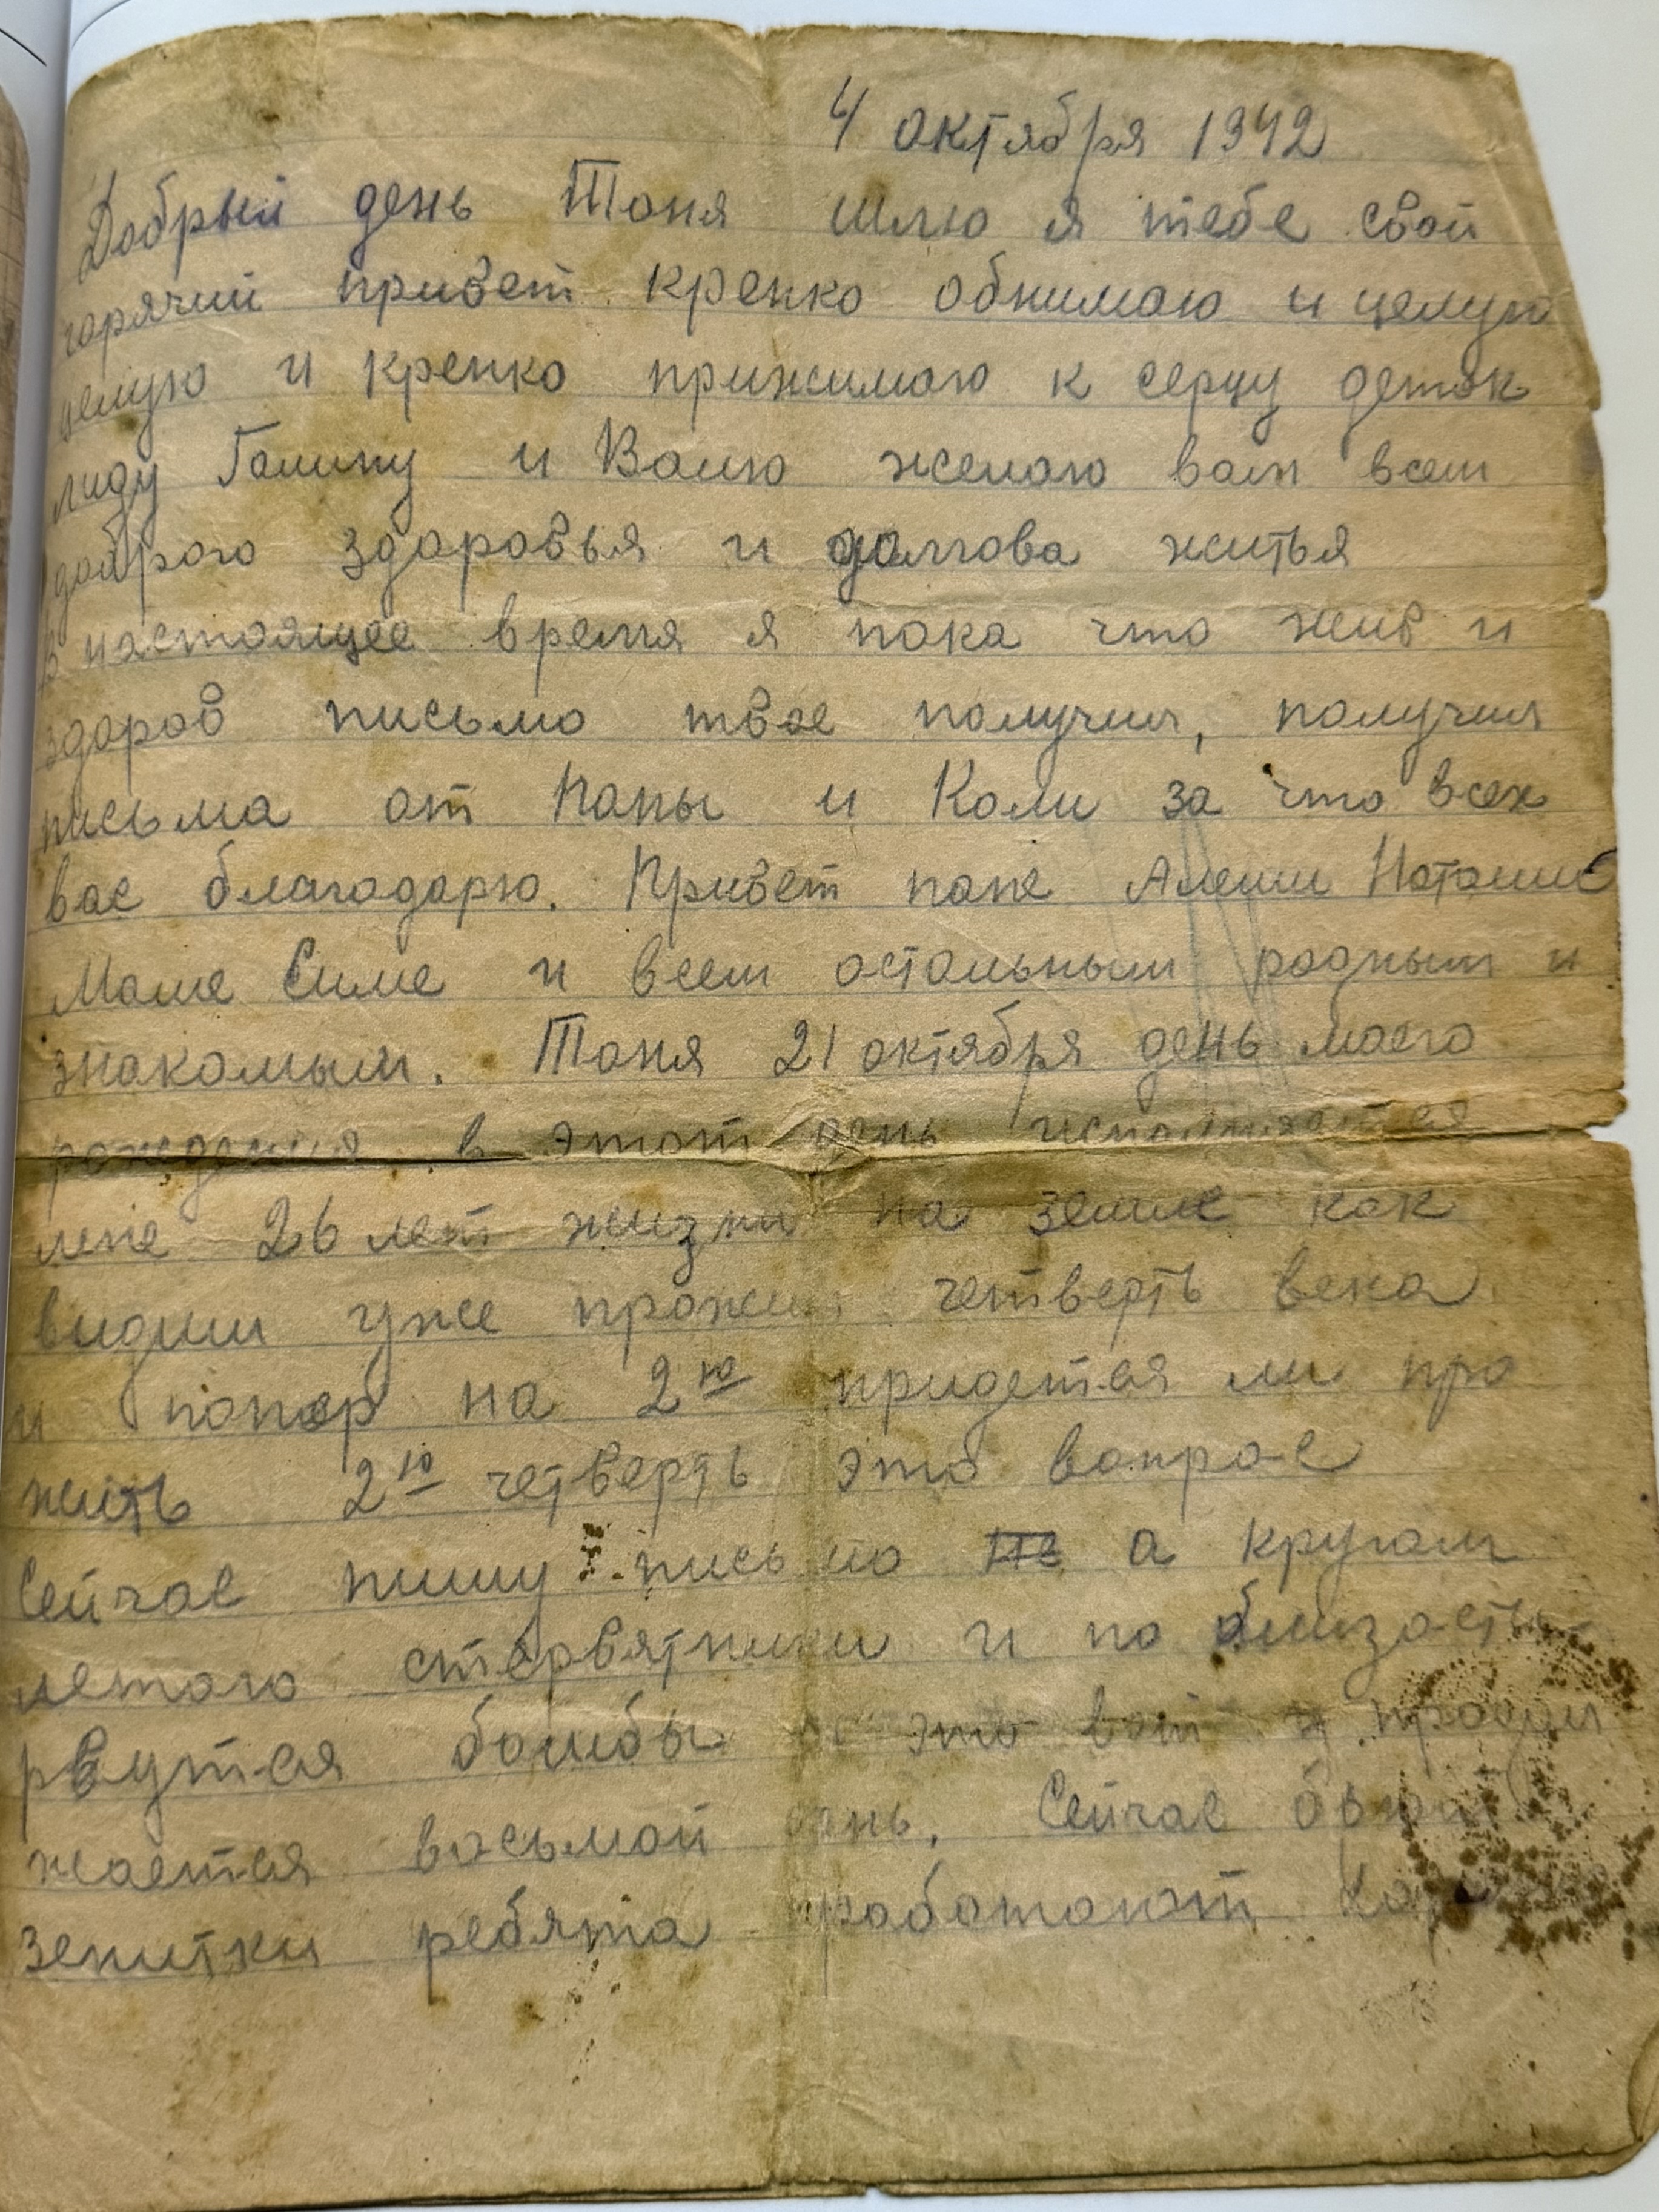 4 октября 1942
Добрый день Тоня шлю я тебе свой
горячий привет крепко обнимаю и целую
целую и крепко прижимаю к серцу деток
лиду Галину и Валю желаю вам всем
доброго здоровья и долгова житья
в настоящее время я пока что жив и
здоров письмо твое получил, получил
письма от Папы и Коли за что всех
вас благодарю. Привет папе Алеши Наташе
Маме Симе и всем остальным родным и
знакомым. Тоня 21 октября день моего
рождения в этот день исполняется
мне 26 лет жизни на земле как
видиш уже прожил четверть века
и попер на 2ю придется ли про
жить 2ю четверть это вопрос
Сейчас пишу письмо а кругом
летаю стервятники и по близасти
рвутся бомбы это вот и продол
жается восьмой день. Сейчас бьют
зенитки ребята работают